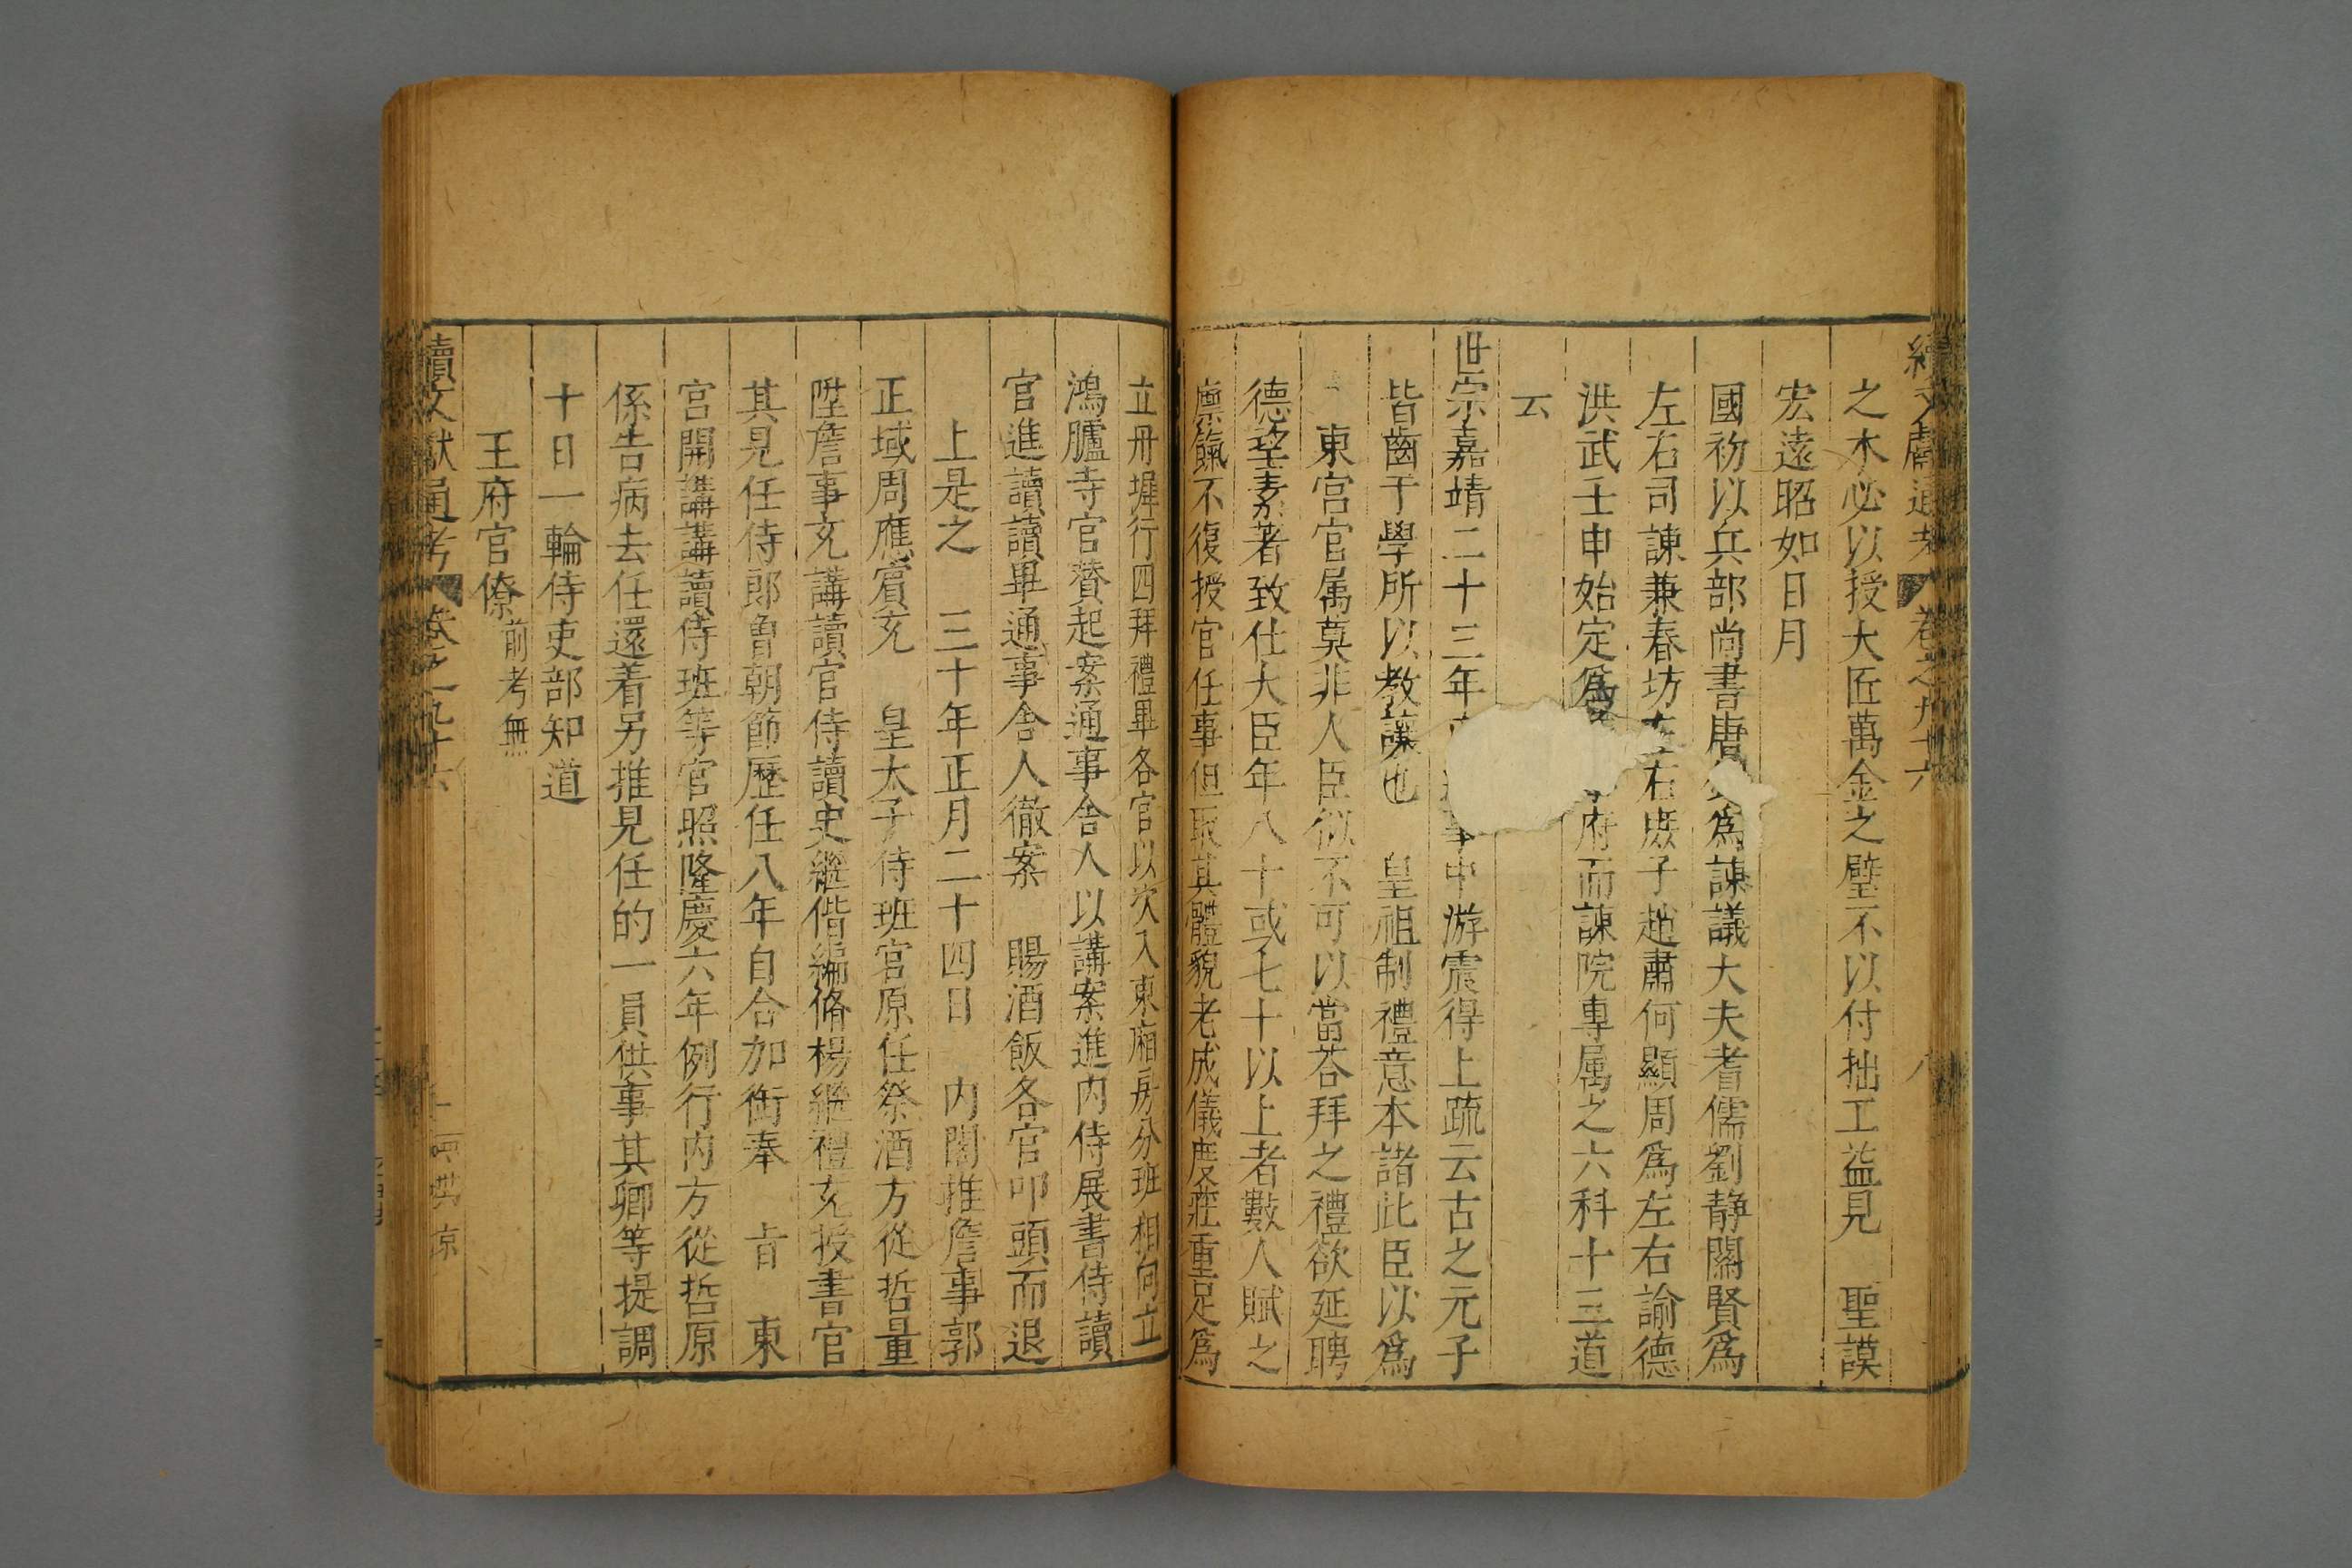 續文獻通考 卷之九十六 八
之木必以授大匠萬金之璧不以付拙工益見 聖謨
宏遠昭如日月
國初以兵部尚書唐 爲諫議大夫耆儒劉静關賢爲
左右司諫兼春坊左右庻子趙肅何顯周爲左右諭德
洪武壬申始定爲 府而諫院專属之六科十三道
云
世宗嘉靖二十三年 事中游震得上疏云古之元子
皆齒于學所以教讓也 皇祖制禮意本諸此臣以爲
東宫官属莫非人臣似不可以當荅拜之禮欲延聘
德望素著致仕大臣年八十或七十以上者數人賦之
廪餼不復授官任事但取其體貌老成儀度莊重足爲
立丹墀行四拜禮畢各官以次入東廂房分班相向立
鴻臚寺官賛起案通事舎人以講案進内侍展書侍讀
官進讀讀畢通事舎人徹案 賜酒飯各官叩頭而退
上是之 三十年正月二十四日 内閣推詹事郭
正域周應賔充 皇太子侍班官原任祭酒方從哲量
陞詹事充講讀官侍讀史繼偕編脩楊繼禮充授書官
其見任侍郎曽朝節歷任八年自合加銜奉 㫖 東
宫開講講讀侍班等官照隆慶六年例行内方從哲原
係告病去任還着另推見任的一員供事其卿等提調
十日一輪侍吏部知道
王府官僚 前考無
續文獻通考 卷之九十六